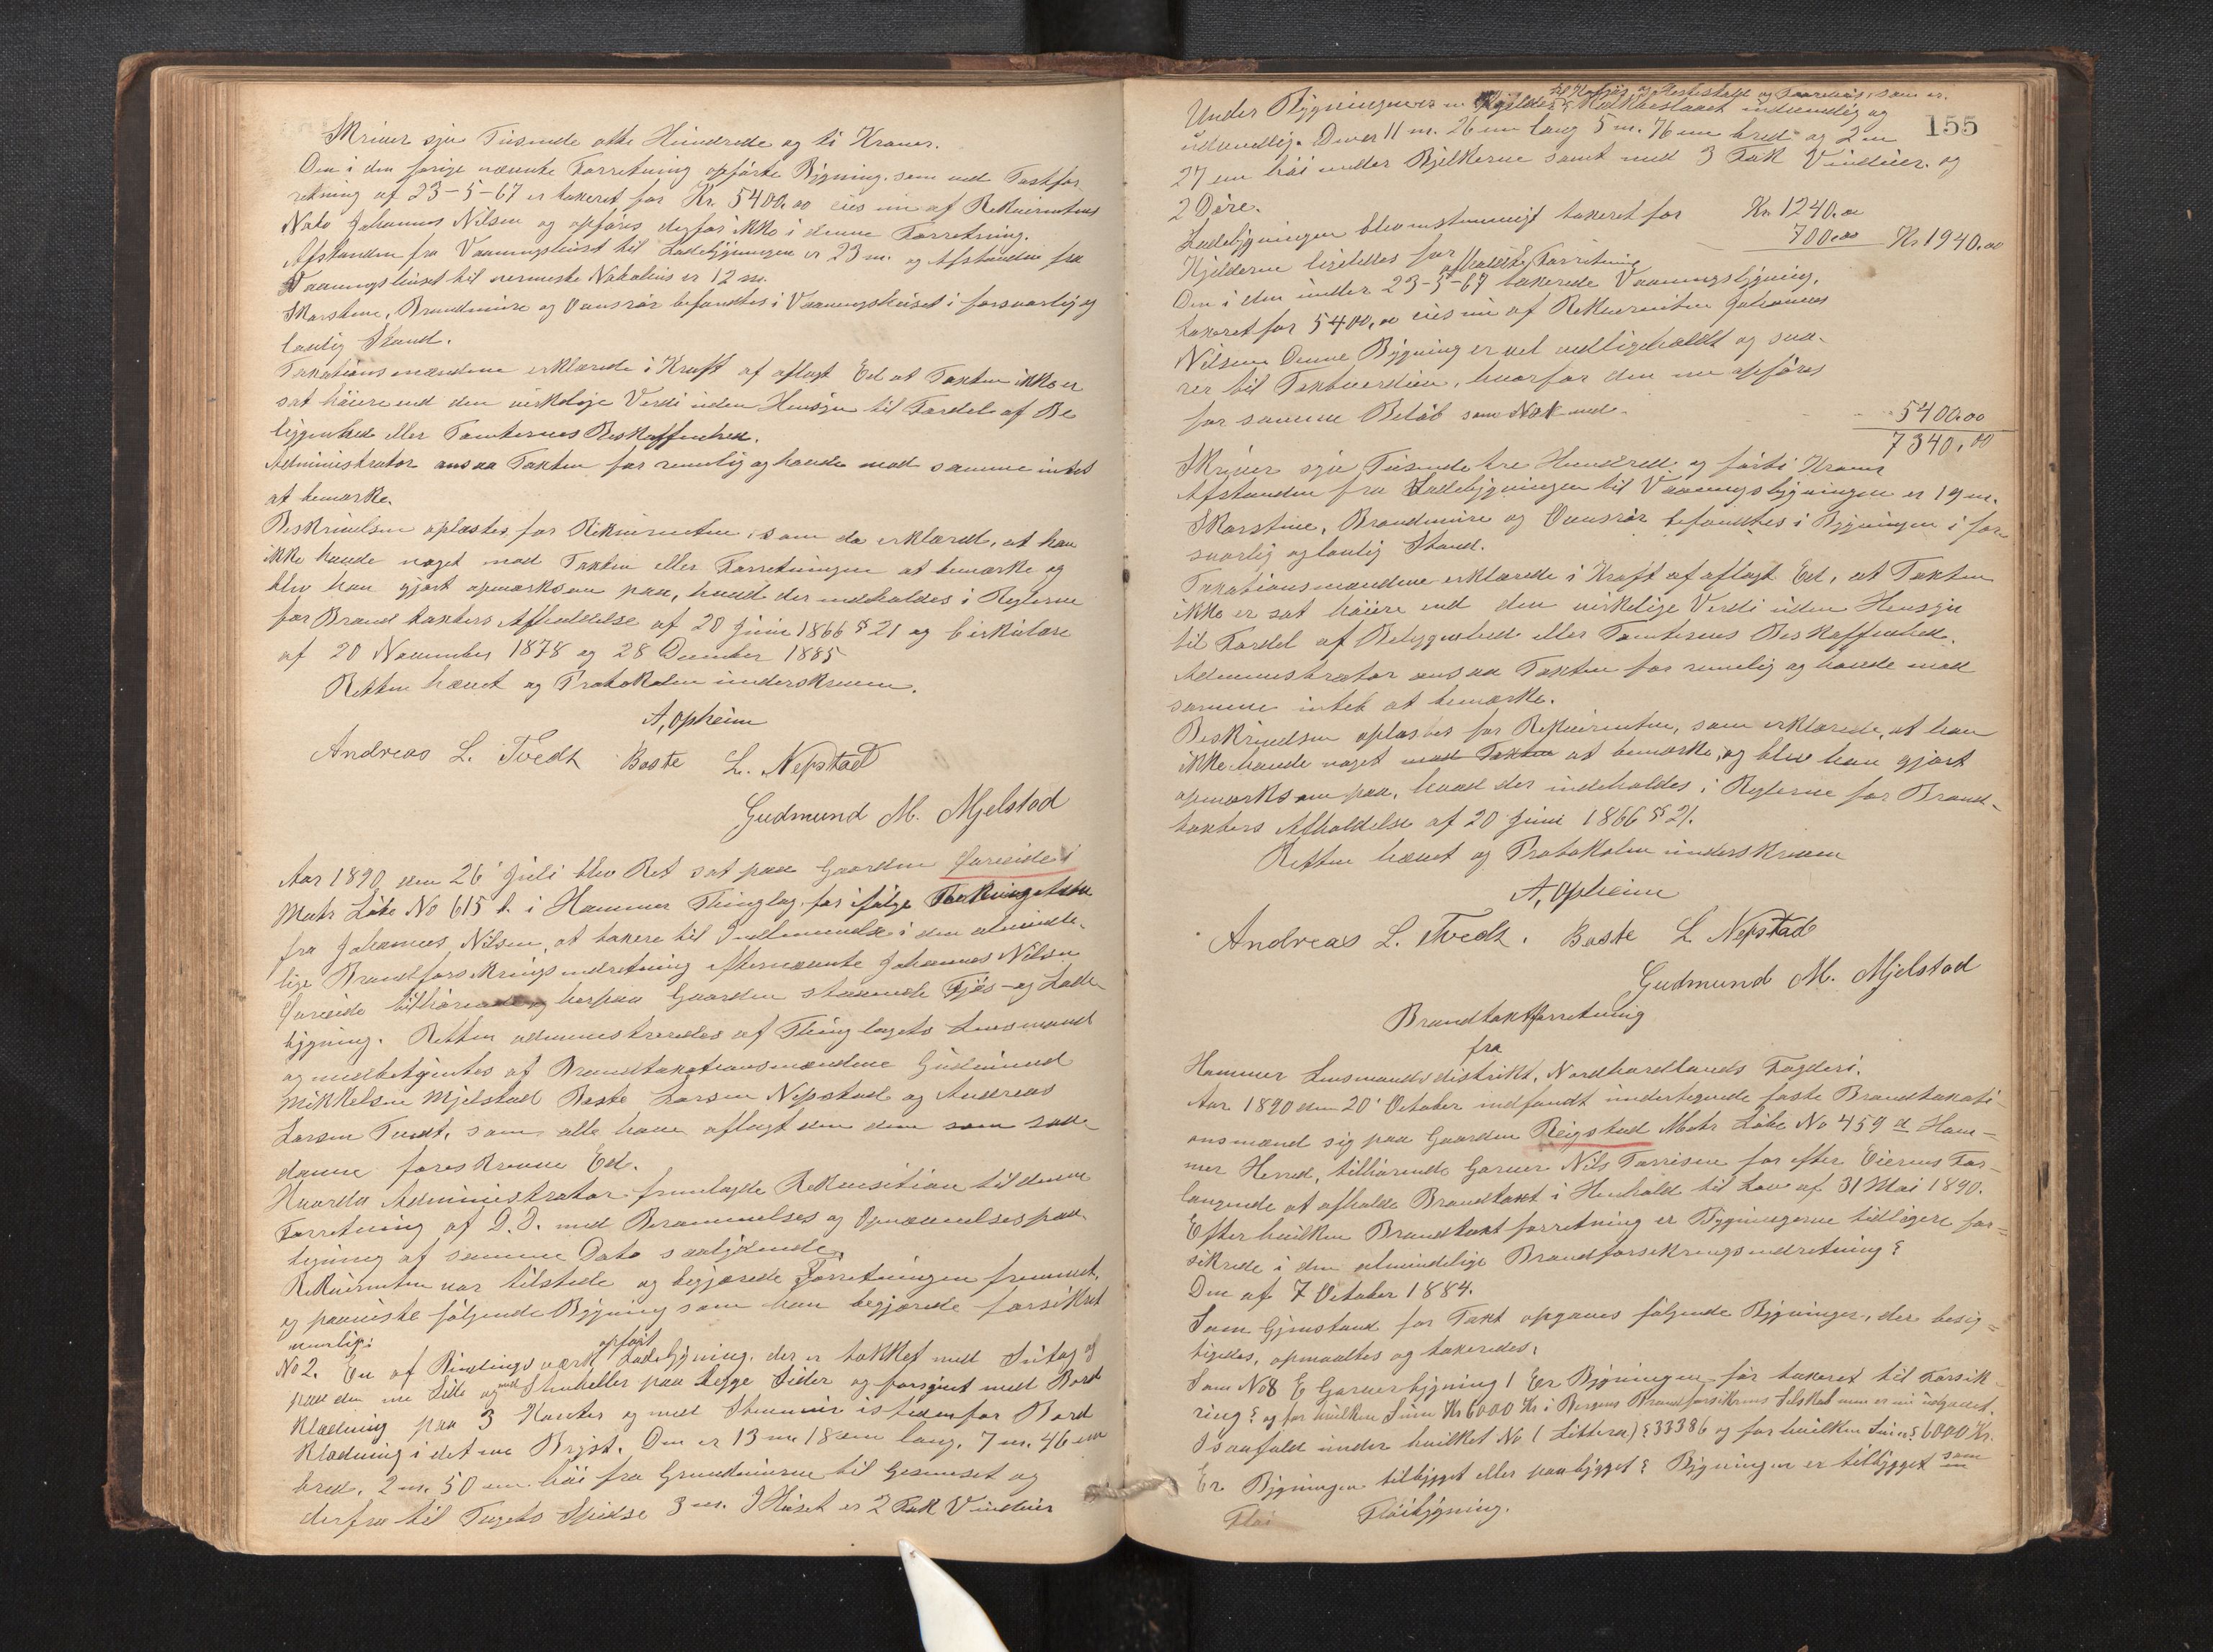 Skriver sju Tusende otte Hundrede og ti Kroner.
Den i den forige nævnte Forretning opførte Bygning, som ved Taxtfor-
retning af 23-5-67 er taxeret for Kr. 5400,00 eies nu af Rekvirentens
Nabo Johannes Nilsen og opføres derfor ikke i denne Forretning.
Afstanden fra Vaaningshuset til Ladebygningen er 23 m. og Afstanden fra
Vaaningshuset til nærmeste Nabohus er 12 m.
Skorstene, Brandmure og Ovnsrør befandtes i Vaaningshuset i forsvarlig og
lovlig Stand.
Taxationsmændene erklærede i Kraft af aflagt Ed at Taxten ikke er
sat høiere end den virkelige Verdi uden Hensyn til Fordel af Be
liggenhed eller Tomternes Beskaffenhed.
Administrator ansaa Taxten for rimelig og havde mod samme intet
at bemærke.
Beskrivelsen oplæstes for Rekvirenten, som da erklærede, at han
ikke havde noget mod Taxten eller Forretningen at bemærke og
blev han gjort opmærksom paa, hvad der indeholdes i Reglerne
for Brandtaxters Afholdelse af 20 Juni 1866 § 21 og Cirkulære
af 20 November 1878 og 28 December 1885
Retten hævet og Protokolen underskreven.
A, Opheim
Andreas L. Tvedt Baste L. Nepstad
Gudmund M. Mjelstad
Aar 1890 den 26' Juli blev Ret sat paa Gaarden Juvside i
Matr Løbe No 615 b. i Hammer Thinglag for ifølge
fra Johannes Nilsen, at taxere til Indlemmelse i den alminde-
lige Brandforsikringsindretning efternævnte Johannes Nilsen
Juvside tilhørende og herpaa Gaarden staaende Fjøs- og Lade-
bygning. Retten administreredes af Thinglagets Lensmand
og medbetjentes af Brandtaxationsmændene Gudmund
Mikkelsen Mjelstad Baste Larsen Nepstad og Andreas
Larsen Tvedt, som alle have aflagt den dem som saa-
danne foreskrevne Ed.
Hvorda Administrator fremlagde Rekvisition til denne
Forretning af D.D. med Berammelses og Opnævnelsespaa-
tegning af samme Dato saalydende
Rekvirenten var tilstede og begjærede Forretningen fremmet,
og paaviste følgende Bygning som han begjærede forsikret
nemlig:
No 2. En af Bindingsværk opført Ladebygning, der er tækket med Sutag og
paa den ene Side og med Skiveheller paa begge Sider og forsynet med Bord
klædning paa 3 Kanter og med Stenmur istedenfor Bord
klædning i det ene Bryst. Den er 13 m. 18 cm lang, 7 m. 46 cm
bred, 2 m. 50 cm høi fra Grundmuren til Gesimset og
derfra til Tagets Spidse 3 m. I Huset er 2 Fak Vinduer
155
til Kofjøs og Hestestald og Faarehus, som er
Under Bygningen er en Kjelder
udvendig. Den er 11 m. 26 cm lang 5 m. 76 cm bred og 2 m
27 cm høi under Bjelkerne samt med 3 Fak Vinduer og
2 Døre.
Ladebygningen blev enstemmigt taxeret for Kr 1240,00
Kjelderen ligeledes for 700,00 Kr 1940,00
afholdte Forretning
Den i den under 23-5-67 taxerede Vaaningsbygning,
taxeret for 5400,00 eies nu af Rekvirenten Johannes
Nilsen. Denne Bygning er vel vedligeholdt og sva-
rer til Taxtværdien, hvorfor den nu opføres
for samme Beløb som No 1 med 5400,00
7340,00
Skriver sju Tusende tre Hundrede og førti Kroner
Afstanden fra Ladebygningen til Vaaningsbygningen er 19 m.
Skorstene, Brandmure og Ovnsrør befandtes i Bygningen i for
svarlig og lovlig Stand.
Taxationsmændene erklærede i Kraft af aflagt Ed, at Taxten
ikke er sat høiere end den virkelige Verdi uden Hensyn
til Fordel af Beliggenhed eller Tomternes Beskaffenhed.
Administrator ansaa Taxten for rimelig og havde mod
samme intet at bemærke.
Beskrivelsen oplæstes for Rekvirenten, som erklærede, at han
ikke havde noget mod Taxten at bemærke, og blev han gjort
opmærksom paa, hvad der indeholdes i Reglerne for Brand-
taxters Afholdelse af 20 Juni 1866 § 21.
Retten hævet og Protokolen underskreven
A, Opheim
Andreas L. Tvedt. Baste L. Nepstad
Gudmund M. Mjelstad
Brandtaxtforretning
fra
Hammer Lensmandsdistrikt, Nordhordlands Fogderi.
Aar 1890 den 20' October indfandt undertegnede faste Brandtaxati-
onsmænd sig paa Gaarden Reigstad Matr Løbe No 459 a Ham-
mer Herred, tilhørende Garver Nils Torrisen for efter Eierens For-
langende at afholde Brandtaxt i Henhold til Lov af 31 Mai 1890.
Efter hvilken Brandtaxtforretning er Bygningerne tidligere for-
sikrede i den almindelige Brandforsikringsindretning?
Den af 7 October 1884.
Som Gjenstand for Taxt opgaves følgende Bygninger, der besig-
tigedes, opmaaltes og taxeredes:
Som No 8 E Garverbygning 1 Er Bygningen før taxeret til Forsik-
ring? og for hvilken Sum Kr 6000 Kr i Bergens Brandforsikrings Selskab men er nu udgaaet.
I saafald under hvilket No (Littera)? 33386 og for hvilken Sum? 6000 Kr.
Er Bygningen tilbygget eller paabygget? Bygningen er tilbygget som en
Fløi Fløibygning.